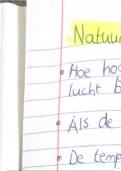 Natuu
• Hoe hoo
lucht b
• Als de
• De temp